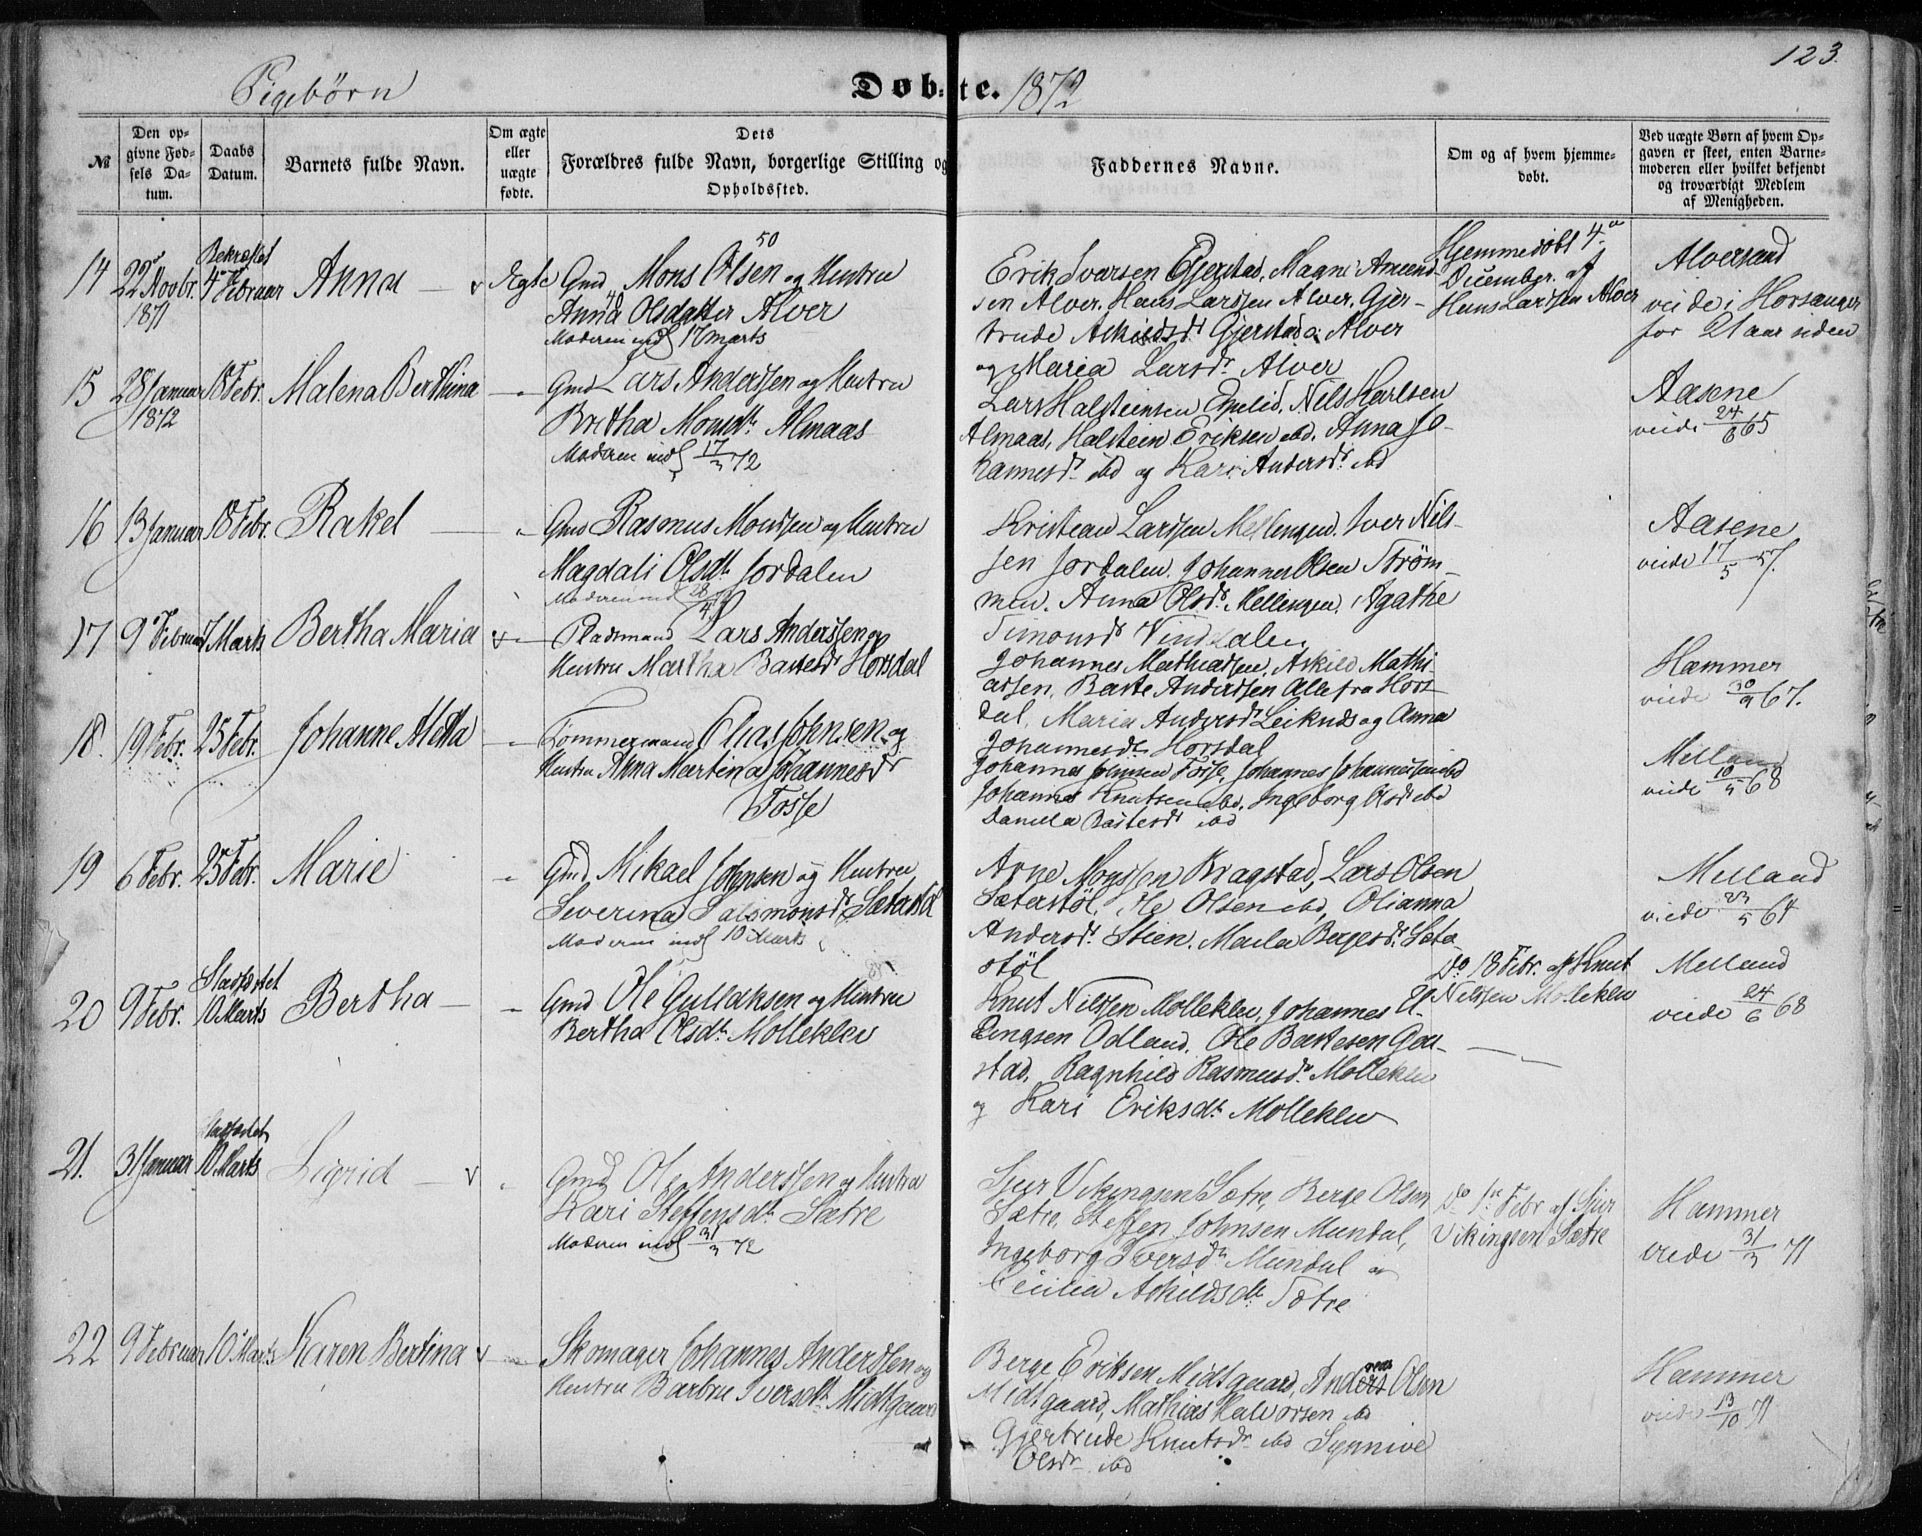 123.
Pigebørn
Døb-te. 1872
№
Den op-
givne Fød-
sels Da-
tum.
Daabs
Datum.
Barnets fulde Navn.
Om ægte
eller
uægte
fødte.
Dets
Forældres fulde Navn, borgerlige Stilling og
Opholdssted.
Faddernes Navne.
Om og af hvem hjemme-
døbt.
Ved uægte Børn af hvem Op-
gaven er skeet, enten Barne-
moderen eller hvilket bekjendt
og troværdigt Medlem
af Menigheden.
14
22 Novbr.
1871
Bekræftet
4 Februar
Anna
Ægte
50
Gmd Mons Olsen og Hustru
Anna Olsdatter Alver
Moderen indl 17 marts
Erik Ivarsen Gjerstad, Magni Amund-
sen Alver, Hans Larssen Alver, Gjer-
trude Askildsdr Gjerstad, Alver
og Maria Larsdr Alver
Hjemmedøbt 4de
December af
Hans Larssen Alver
Alversund
viede i Hosanger
for 21 aar siden
15
28 Januar
1872
18 Febr.
Malena Berthina
Gmd Lars Anderssen og Hustru
Britha Monsdtr Almaas
Moderen indl 17/3 72
Lars Halsteinsen Epelid, Nils Karlsen
Almaas, Halstein Eriksen ibd. Anna Jo-
hannesdr ibd og Kari Andersdr ibd
Aasene
viede 24/6 65
16
13 Januar
18 Febr.
Rakel
Gmd Rasmus Monssen og Hustru
Magdali Olsdtr Jordalen
Moderen indl 28/4
Kristian Larssen Mellingen. Iver Nils-
sen Jordalen. Johannes Olsen Strøm-
men. Anna Olsdr Mellingen, Agathe
Simonsdr
Aasene
viede 17/5 57.
17
9 Februar
7 Marts
Bertha Maria
Pladsmand Lars Anderssen og
Hustru Martha Bastesdr Horsdal
Johannes Mathiassen, Askild Mathi-
assen, Baste Anderssen Alle fra Hors-
dal, Maria Andersdr Leiknes og Anna
Johannesdr Horsdal
Hammer
viede 30/9 67.
18.
19 Febr.
25 Febr.
Johanne Metta
Tømmermand Elias Johnsen og
Hustru Anna Martina Johannesdr
Fosse
Johannes Johnsen Fosse, Johannes Johannessen ibd
Johannes Knutsen ibd. Ingeborg Olsdr ibd
Daniela Bastesdr ibd
Melland
viede 10/5 68
19
6 Febr.
25 Febr.
Marie
Gmd Mikael Johnsen og Hustru
Severina Salomonsdr Sæterstøl
Moderen indl 10 Marts
Arne Monssen Kragstad, Lars Olsen
Sæterstøl, Ole Olsen ibd, Olianna
Andersdr Stien, Marta Bergesdr Sæte-
støl
Melland
viede 23/5 64
20
9 Febr.
Stadfæstet
10 Marts
Bertha
Gmd Ole Gullaksen og Hustru
Bertha Olsdtr Molleklev
Knut Nilssen Molleklev, Johannes El-
lingsen Odland. Ole Bastesen Gau-
stad, Ragnhild Rasmusdr Molleklev
og Kari Eriksdtr Molleklev
Do 18 Febr. af Knut
Nilssen Molleklev
Melland
viede 24/6 68
21.
31 Januar
Stadfæstet
10 Marts
Sigrid
Gmd Ole Anderssen og Hustru
Kari Steffensdtr Sætre
Moderen indl 31/3 72
Sjur Vikingsen Sætre, Berge Olsen
Sætre, Steffen Johnsen Mundal,
Ingeborg Iversdtr Mundal og
Cecilia Askildsdtr Sætre
Do 1ste Febr af Sjur
Vikingsen Sætre
Hammer
viede 31/3 71
22
9 Februar
10 Marts
Karen Bertina
Skomager Johannes Anderssen og
Hustru Barbru Iversdtr Midtgaard
Berge Eriksen Midtgaard, Anders Olsen
Midtgaard, Mathias Halvorsen ibd
Gjertrude Knutsdr ibd Synnive
Olsdr ibd
Hammer
viede 13/10 71